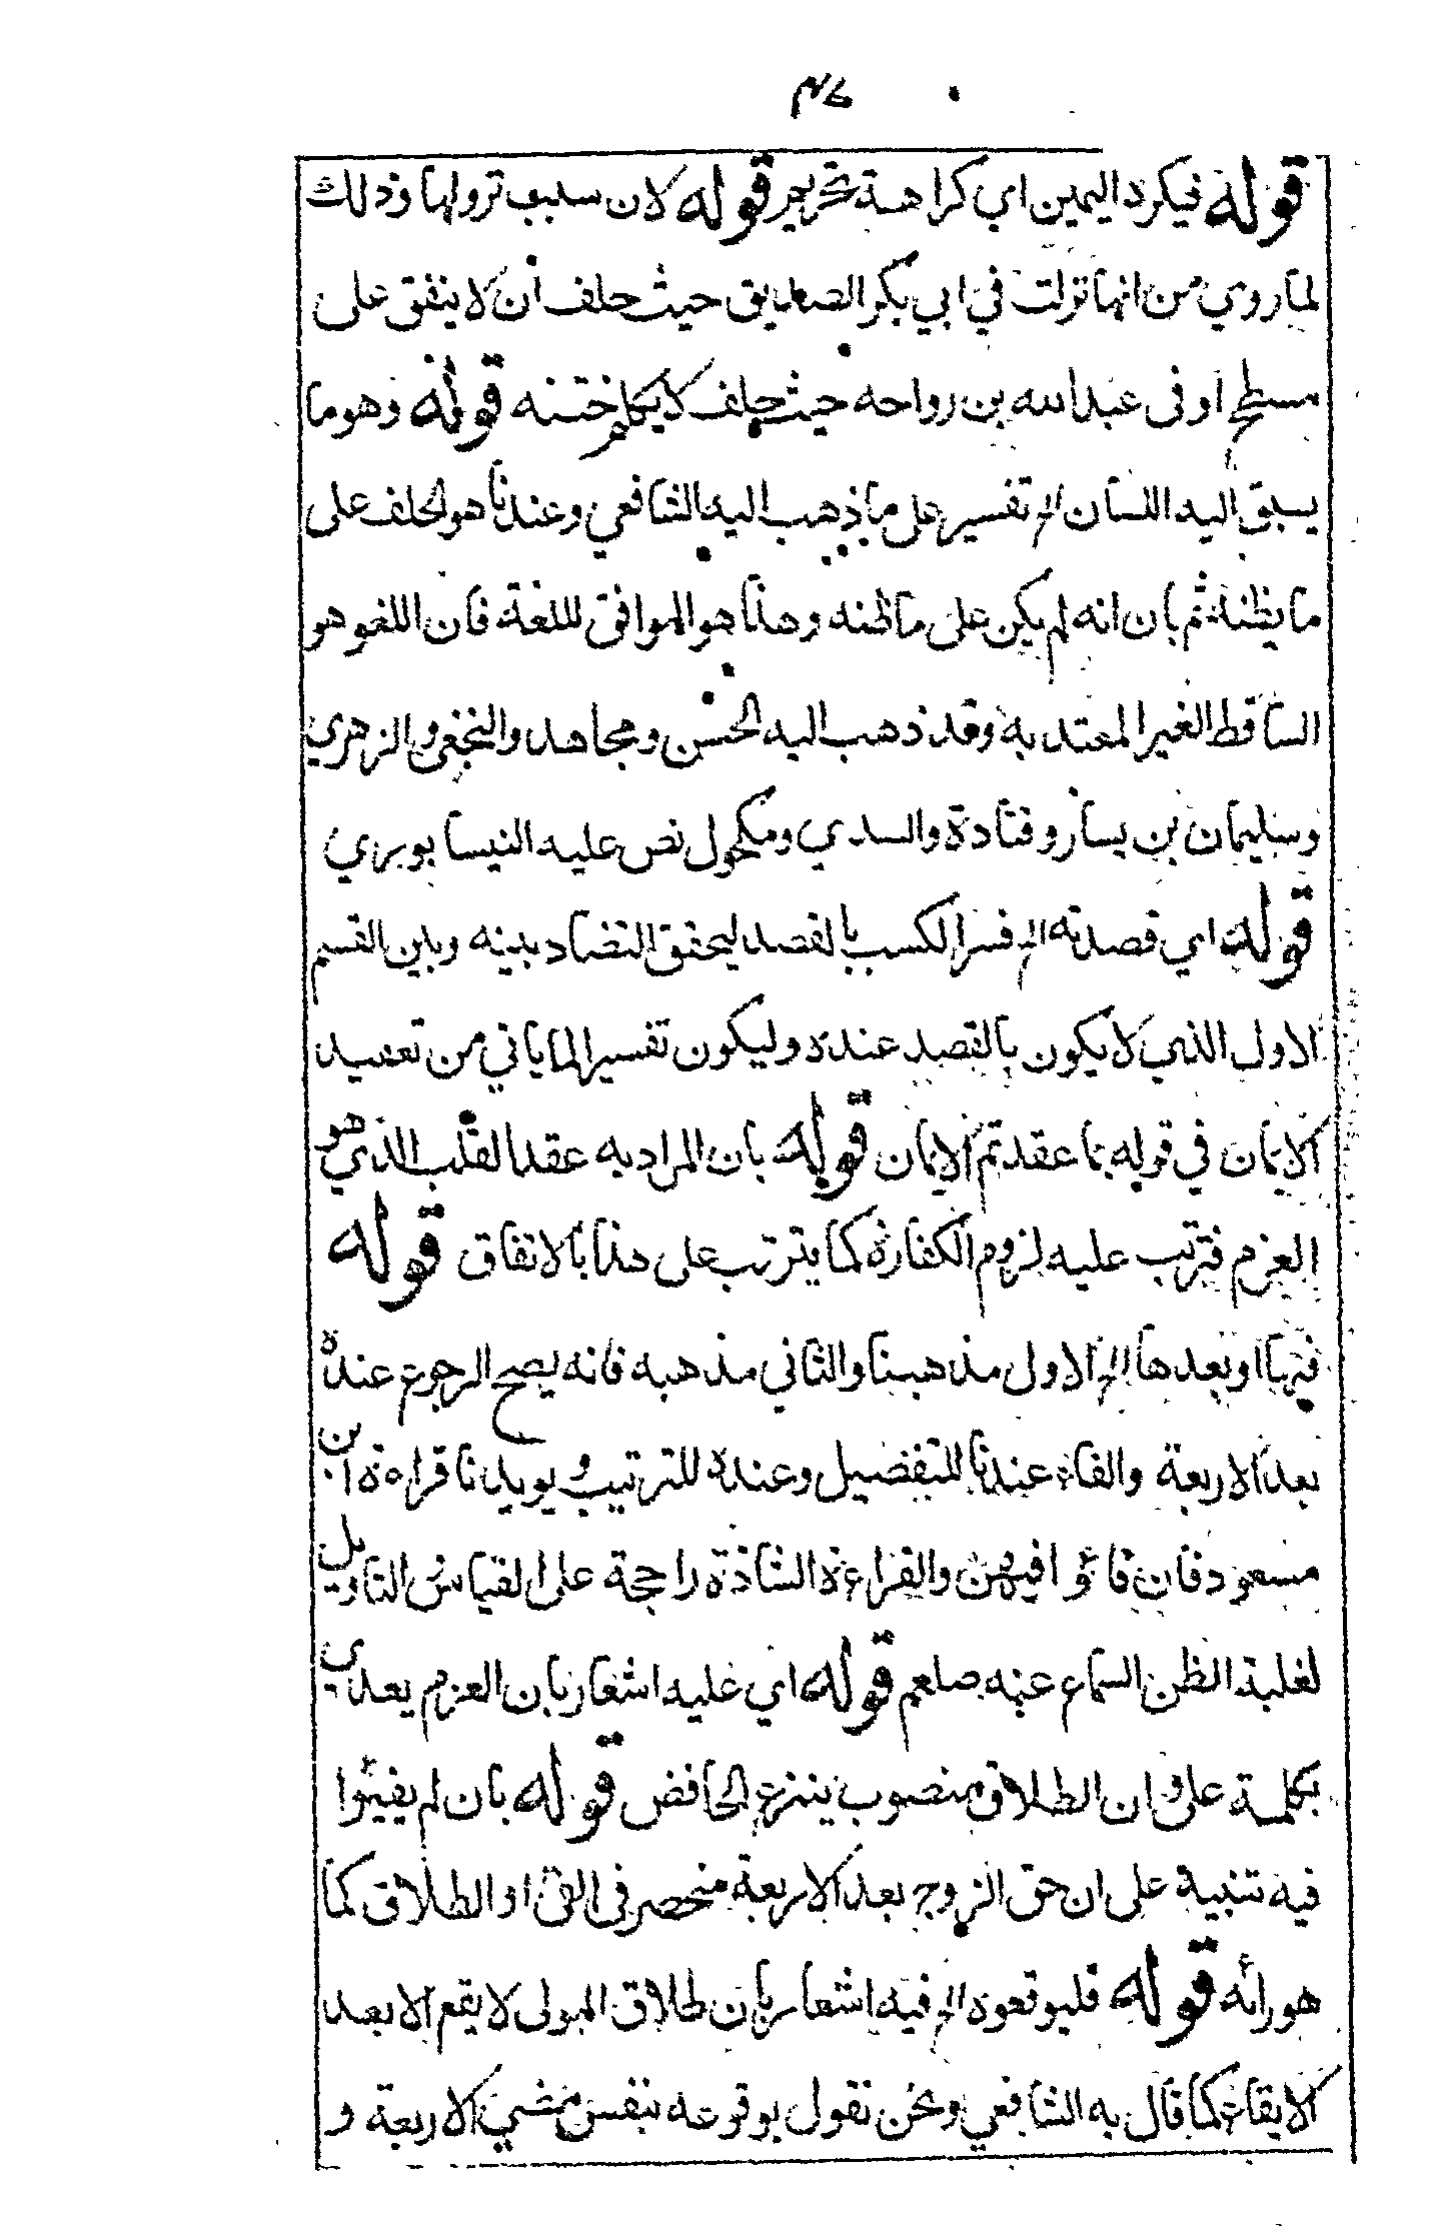 قوله فيكره اليمين اي كراهة تحريم قوله لان سبب نزولها وذلك
لما روي من انها نزلت في ابي بكر الصديق حيث حلف أن لا ينفق على
مسطح او في عبد الله بن رواحه حيث حلف لا يكلم ختنه قوله وهو ما
يسبق اليه اللسان الخ تفسير على ما ذهب اليه الشافعي وعندنا هو الحلف على
ما يظنه ثم بان انه لم يكن على ما ظنه وهذا هو الموافق للغة فان اللغو هو
الساقط الغير المعتد به وقد ذهب اليه الحسن ومجاهد والنخعي والزهري
وسليمان بن يسار وقتادة والسدي ومكحول نص عليه النيسابوري
قوله اي قصدته الخ فسر الكسب بالقصد ليحقق التضاد بينه وبين القسم
الاول الذي لا يكون بالقصد عنده وليكون تفسيرا لما ياتي من تعقيد
الايمان في قوله بما عقدتم الايمان قوله بان المراد به عقد القلب الذي هو
العزم فترتب عليه لزوم الكفارة كما يترتب على هذا بالاتفاق قوله
فيها او بعدها الخ الاول مذهبنا والثاني مذهبه فانه يصح الرجوع عنده
بعد الاربعة والفاء عندنا للتفضيل وعنده للترتيب ويويدنا قراءة ابن
مسعود فان فاؤا فيهن والقراءة الشاذة راجحة على القياس التاويل
لغلبة الظن السماع عنه صلعم قوله اي عليه اشعار بان العزم يعدي
بكلمة على وان الطلاق منصوب بنزع الخافض قوله بان لم يفيئوا
فيه تنبيه على ان حق الزوج بعد الاربعة منحصر في الفئ او الطلاق كما
هو رائه قوله فليوقعوه الخ فيه اشعار بان طلاق المولى لا يقع الا بعد
الايقاء كما قال به الشافعي ونحن نقول بوقوعه بنفس مضي الاربعة و